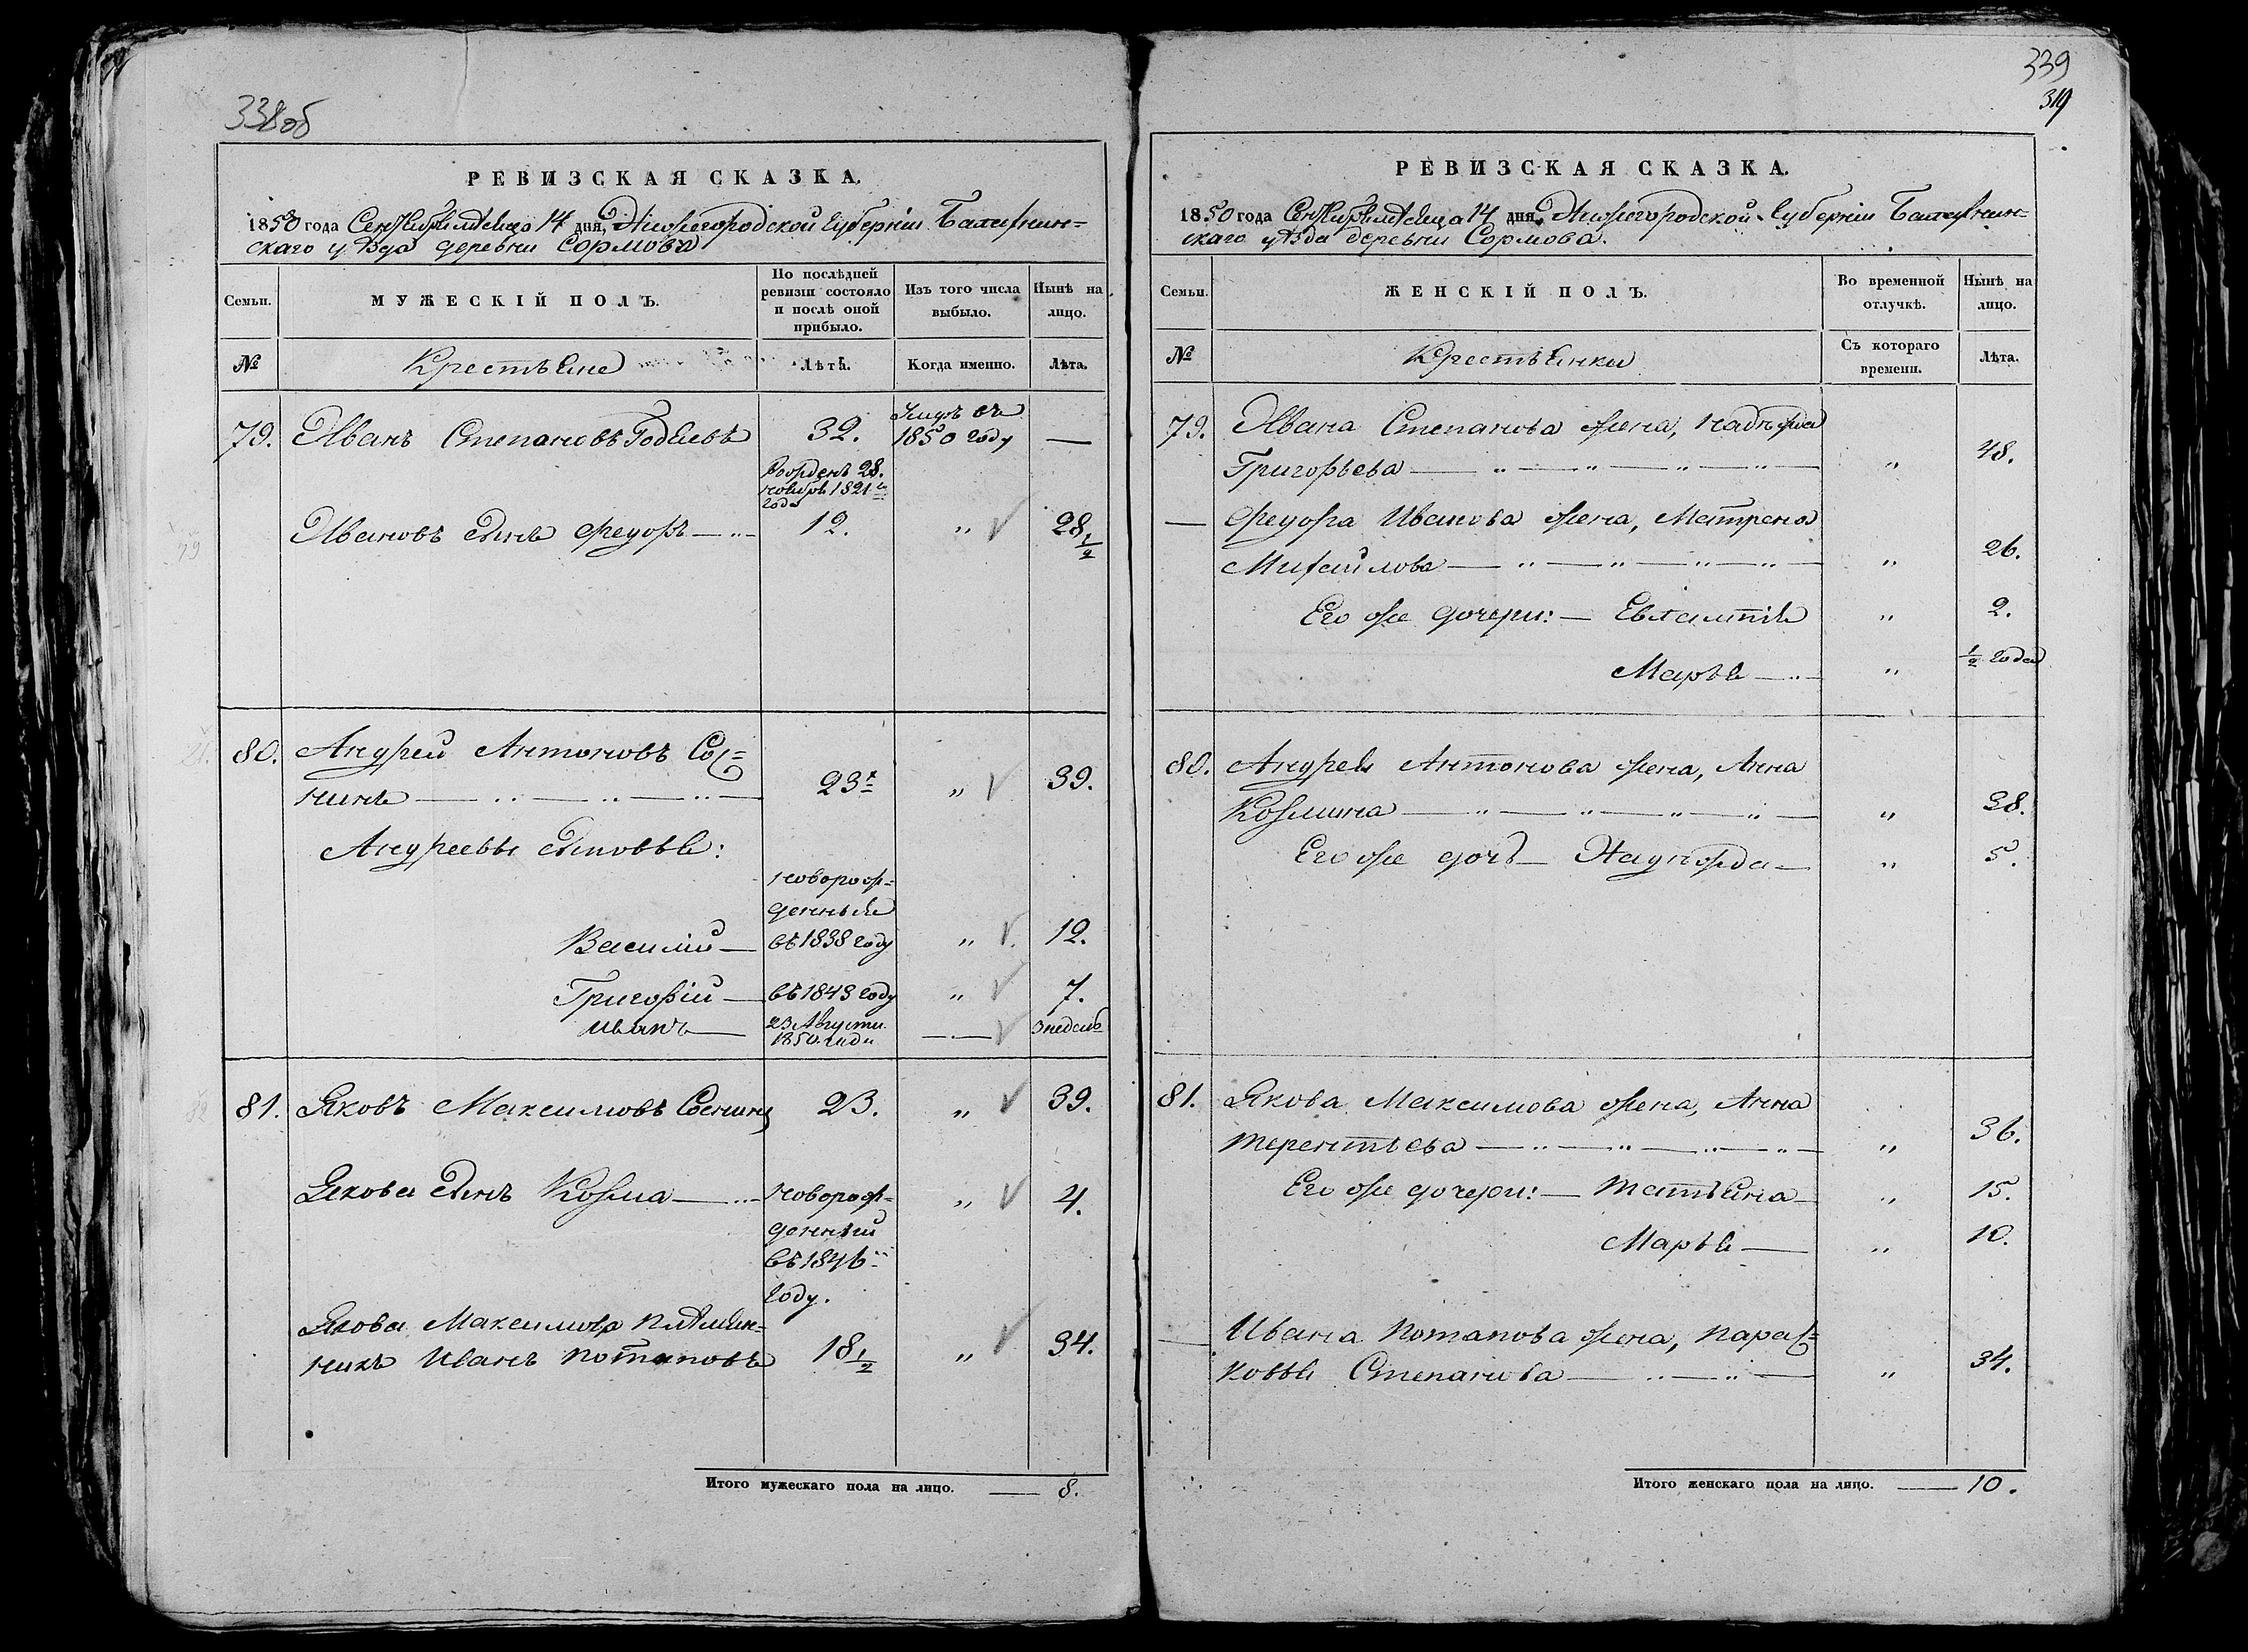 338об
РЕВИЗСКАЯ СКАЗКА.
1850 года Сентября месяца 14 дня, Нижегородской Губерніи Балахнин-
скаго уѣзда деревни Сормова
Семьи.
МУЖЕСКІЙ ПОЛЪ.
По послѣдней ревизіи состояло и послѣ оной прибыло.
Изъ того числа выбыло.
Нынѣ на лицо.
№
Крестьяне
Лѣта.
Когда именно.
Лѣта.
79. Иванъ Степановъ 32. Умеръ въ 1850 году —
Ивановъ сынъ Федоръ — рожденъ 28. ноября 1821 года 12. „ 28 1/2
80. Андрей Антоновъ Сос-
нинъ — 23 „ 39.
Андреевы сыновья:
Василій — новорож-
денные
въ 1838 году „ 12.
Григорій — въ 1843 году „ 7.
Иванъ — 23 Августа 1850 года — 3 недель
81. Яковъ Максимовъ Соснинъ 23. „ 39.
Якова сынъ Козма — новорож-
денный
въ 1846
году. „ 4.
Якова Максимова племян-
никъ Иванъ Потаповъ 18 1/2 „ 34.
Итого мужескаго пола на лицо. — 8.
339
319
РЕВИЗСКАЯ СКАЗКА.
1850 года Сентября месяца 14 дня, Нижегородской Губерніи Балахнин-
скаго уѣзда деревни Сормова.
Семьи.
ЖЕНСКІЙ ПОЛЪ.
Во временной отлучкѣ.
Нынѣ на лицо.
№
Крестьянки
Съ котораго времени.
Лѣта.
79. Ивана Степанова жена, Надежда
Григорьева — „ 48.
— Федора Иванова жена, Матрена
Михайлова — „ 26.
Его же дочери: — Евлампія „ 2.
Марья — „ 1/2 года
80. Андрея Антонова жена, Анна
Козмина — „ 38.
Его же дочь — „ 5.
81. Якова Максимова жена, Анна
Терентьева — „ 36.
Его же дочери: — Татьяна — „ 15.
Марья — „ 10.
— Ивана Потапова жена, Парас-
ковья Степанова — „ 34.
Итого женскаго пола на лицо. — 10.